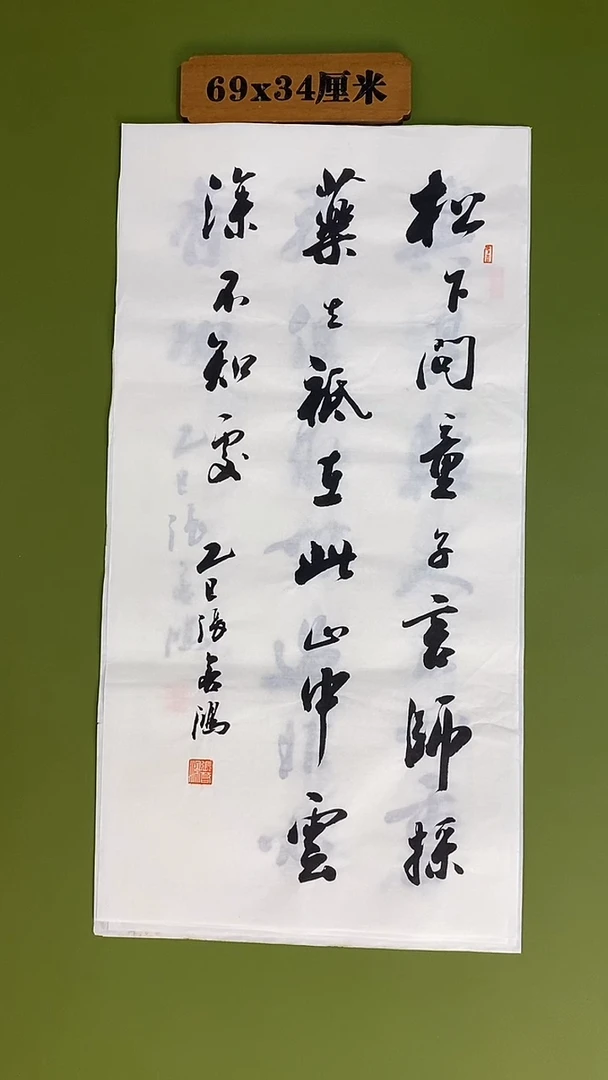 69x34厘米
松下問童子言師採
藥去祗在此山中雲
深不知處
乙巳張善鴻